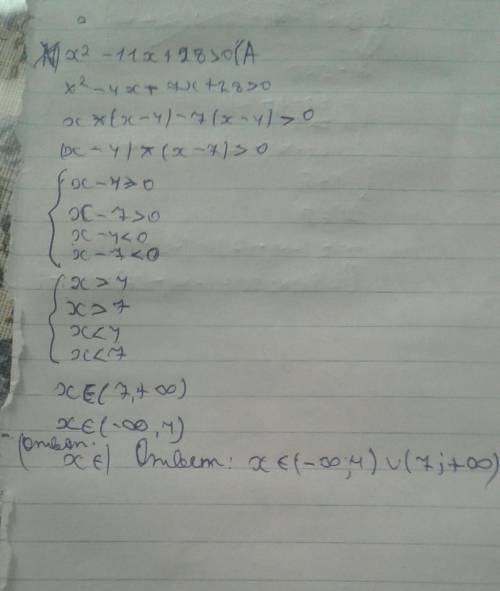 x² - 11x + 28 > 0 (A
x² - 4x + 7x + 28 > 0
x * (x - 4) - 7(x - 4) > 0
(x - 4) * (x - 7) > 0
{ x - 4 > 0
x - 7 > 0
x - 4 < 0
x - 7 < 0
{ x > 4
x > 7
x < 4
x < 7
x ∈ (7, +∞)
x ∈ (-∞, 4)
(Ответ:
x ∈) Ответ: x ∈ (-∞; 4) ∪ (7; +∞)